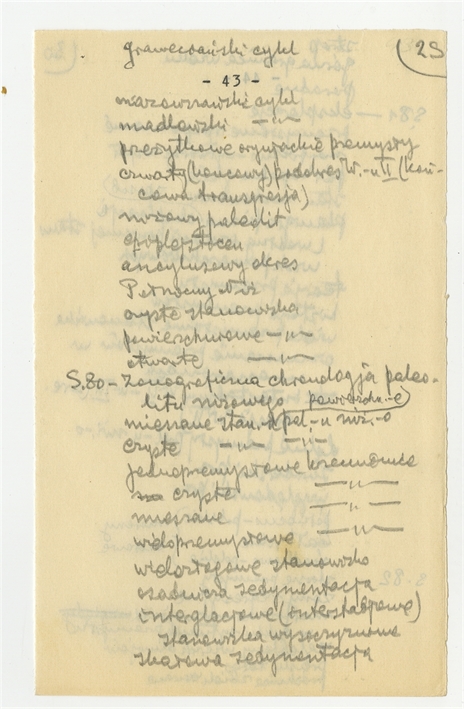 graweciański cykl
29
- 43 -
mazowszawski cykl
madlewski —"—
przeżytkowe oryniackie przemysły
czwarty (końcowy) podokres W.-u II (koń-
cowa transgresja)
niżowy paleolit
epiplejstocen
ancylusowy okres
Północny Niż
czyste stanowiska
powierzchniowe —"—
otwarte —"—
S.80 - Zonograficzna chronologja paleo-
litu niżowego powierzchn.-e
mieszane stan.-a pal.-u niż.-o
czyste —"— —"—
jednoprzemysłowe krzemienice
czyste —"—
mieszane —"—
wieloprzemysłowe —"—
wielozłogowe stanowisko
osadnicza sedymentacja
interglacjowe (interstadjowe)
stanowiska wysoczyznowe
skałowa sedymentacja